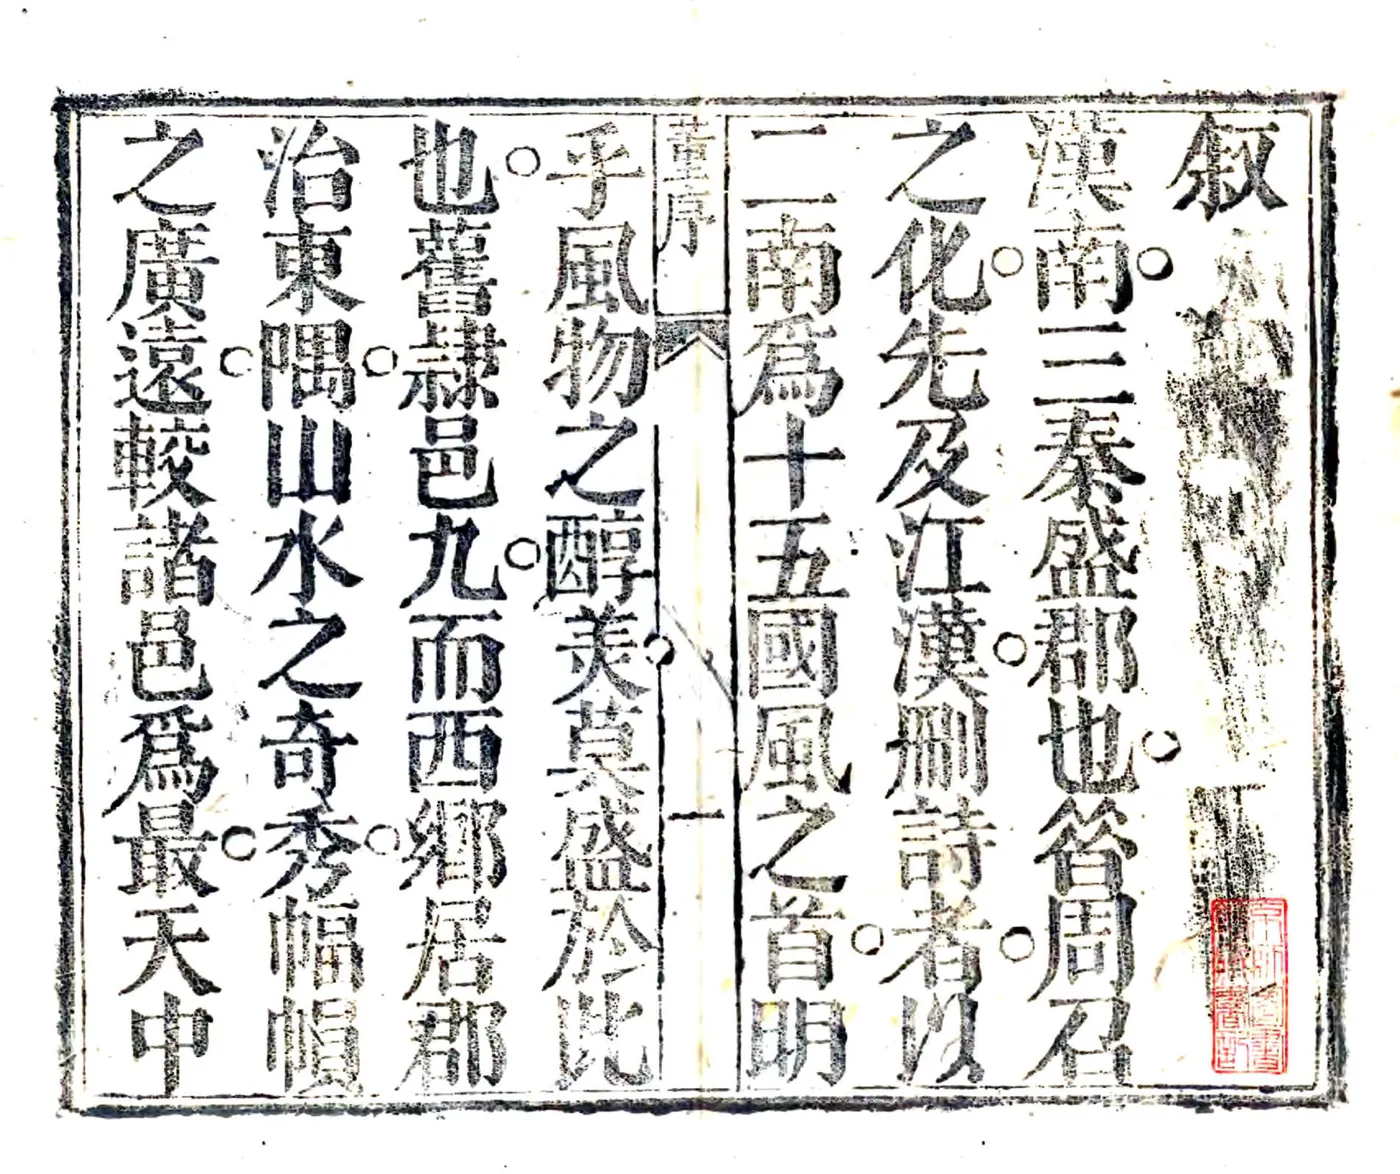 叙
漢南三秦盛郡也㫺周召
之化先及江漢刪詩者以
二南爲十五國風之首明
董序
一
乎風物之醇美莫盛於此
也舊隸邑九而西鄉居郡
治東隅山水之奇秀幅幀
之廣遠較諸邑爲最天中